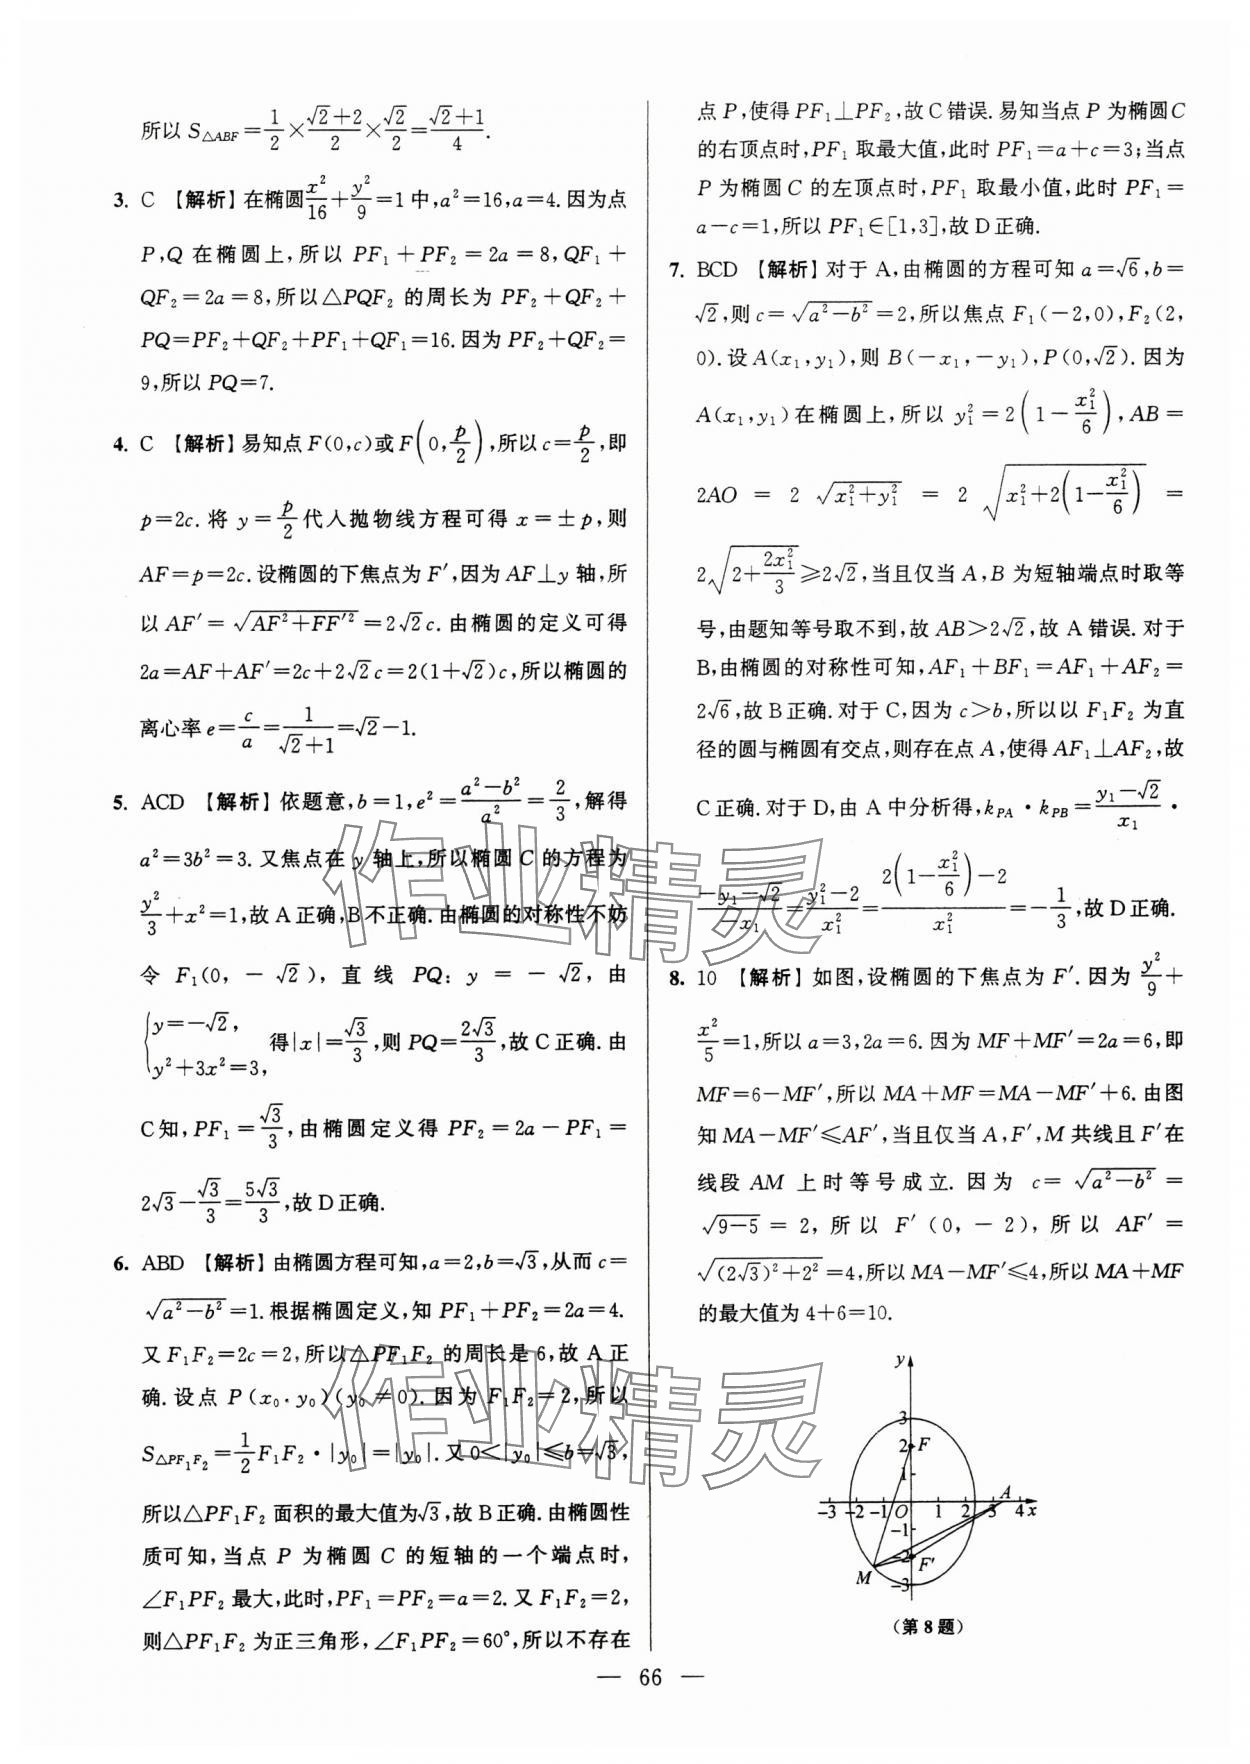 所以 S△ABF=1/2×(√2+2)/2×√2/2=(√2+1)/4.
3. C 【解析】在椭圆x²/16+y²/9=1中,a²=16,a=4.因为点
P,Q 在椭圆上,所以 PF₁+PF₂=2a=8,QF₁+
QF₂=2a=8,所以△PQF₂ 的周长为 PF₂+QF₂+
PQ=PF₂+QF₂+PF₁+QF₁=16.因为PF₂+QF₂=
9,所以 PQ=7.
4. C 【解析】易知点F(0,c)或F(0,p/2),所以c=p/2,即
p=2c.将 y=p/2代入抛物线方程可得 x=±p,则
AF=p=2c.设椭圆的下焦点为F′,因为AF⊥y 轴,所
以 AF′=√(AF²+FF′²)=2√2c.由椭圆的定义可得
2a=AF+AF′=2c+2√2c=2(1+√2)c,所以椭圆的
离心率e=c/a=1/(√2+1)=√2-1.
5. ACD 【解析】依题意,b=1,e²=(a²-b²)/a²=2/3,解得
a²=3b²=3.又焦点在 y 轴上,所以椭圆C的方程为
y²/3+x²=1,故A正确,B不正确.由椭圆的对称性不妨
令 F₁(0,-√2),直线 PQ:y=-√2,由
{y=-√2,
y²+3x²=3, 得|x|=√3/3,则 PQ=2√3/3,故C正确.由
C知,PF₁=√3/3,由椭圆定义得 PF₂=2a-PF₁=
2√3-√3/3=5√3/3,故D正确.
6. ABD 【解析】由椭圆方程可知,a=2,b=√3,从而c=
√(a²-b²)=1.根据椭圆定义,知 PF₁+PF₂=2a=4.
又F₁F₂=2c=2,所以△PF₁F₂ 的周长是6,故A正
确.设点 P(x₀,y₀)(y₀≠0).因为 F₁F₂=2,所以
S△PF₁F₂=1/2F₁F₂·|y₀|=|y₀|.又0<|y₀|≤b=√3,
所以△PF₁F₂ 面积的最大值为√3,故B正确.由椭圆性
质可知,当点 P 为椭圆 C 的短轴的一个端点时,
∠F₁PF₂ 最大,此时,PF₁=PF₂=a=2.又F₁F₂=2,
则△PF₁F₂ 为正三角形,∠F₁PF₂=60°,所以不存在
点P,使得PF₁⊥PF₂,故C错误.易知当点P为椭圆C
的右顶点时,PF₁ 取最大值,此时 PF₁=a+c=3;当点
P 为椭圆 C 的左顶点时,PF₁ 取最小值,此时 PF₁=
a-c=1,所以PF₁∈[1,3],故D正确.
7. BCD 【解析】对于A,由椭圆的方程可知a=√6,b=
√2,则c=√(a²-b²)=2,所以焦点F₁(-2,0),F₂(2,
0).设A(x₁,y₁),则 B(-x₁,-y₁),P(0,√2).因为
A(x₁,y₁)在椭圆上,所以 y₁²=2(1-x₁²/6),AB=
2AO = 2√(x₁²+y₁²) = 2√(x₁²+2(1-x₁²/6)) =
2√(2+2x₁²/3)≥2√2,当且仅当A,B为短轴端点时取等
号,由题知等号取不到,故AB>2√2,故A错误.对于
B,由椭圆的对称性可知,AF₁+BF₁=AF₁+AF₂=
2√6,故B正确.对于C,因为c>b,所以以F₁F₂ 为直
径的圆与椭圆有交点,则存在点A,使得AF₁⊥AF₂,故
C正确.对于D,由A中分析得,kPA·kPB=(y₁-√2)/x₁·
(-y₁-√2)/(-x₁)=(y₁²-2)/x₁²=(2(1-x₁²/6)-2)/x₁²=-1/3,故D正确.
8. 10 【解析】如图,设椭圆的下焦点为F′.因为y²/9+
x²/5=1,所以a=3,2a=6.因为MF+MF′=2a=6,即
MF=6-MF′,所以MA+MF=MA-MF′+6.由图
知MA-MF′≤AF′,当且仅当A,F′,M共线且F′在
线段 AM 上时等号成立.因为 c=√(a²-b²)=
√(9-5)=2,所以 F′(0,-2),所以 AF′=
√((2√3)²+2²)=4,所以MA-MF′≤4,所以MA+MF
的最大值为4+6=10.
y
3
2 F
1
A
-3 -2 -1 O 1 2 3 4 x
-1
-2 F′
M
-3
(第8题)
— 66 —
作业精灵
作业精灵